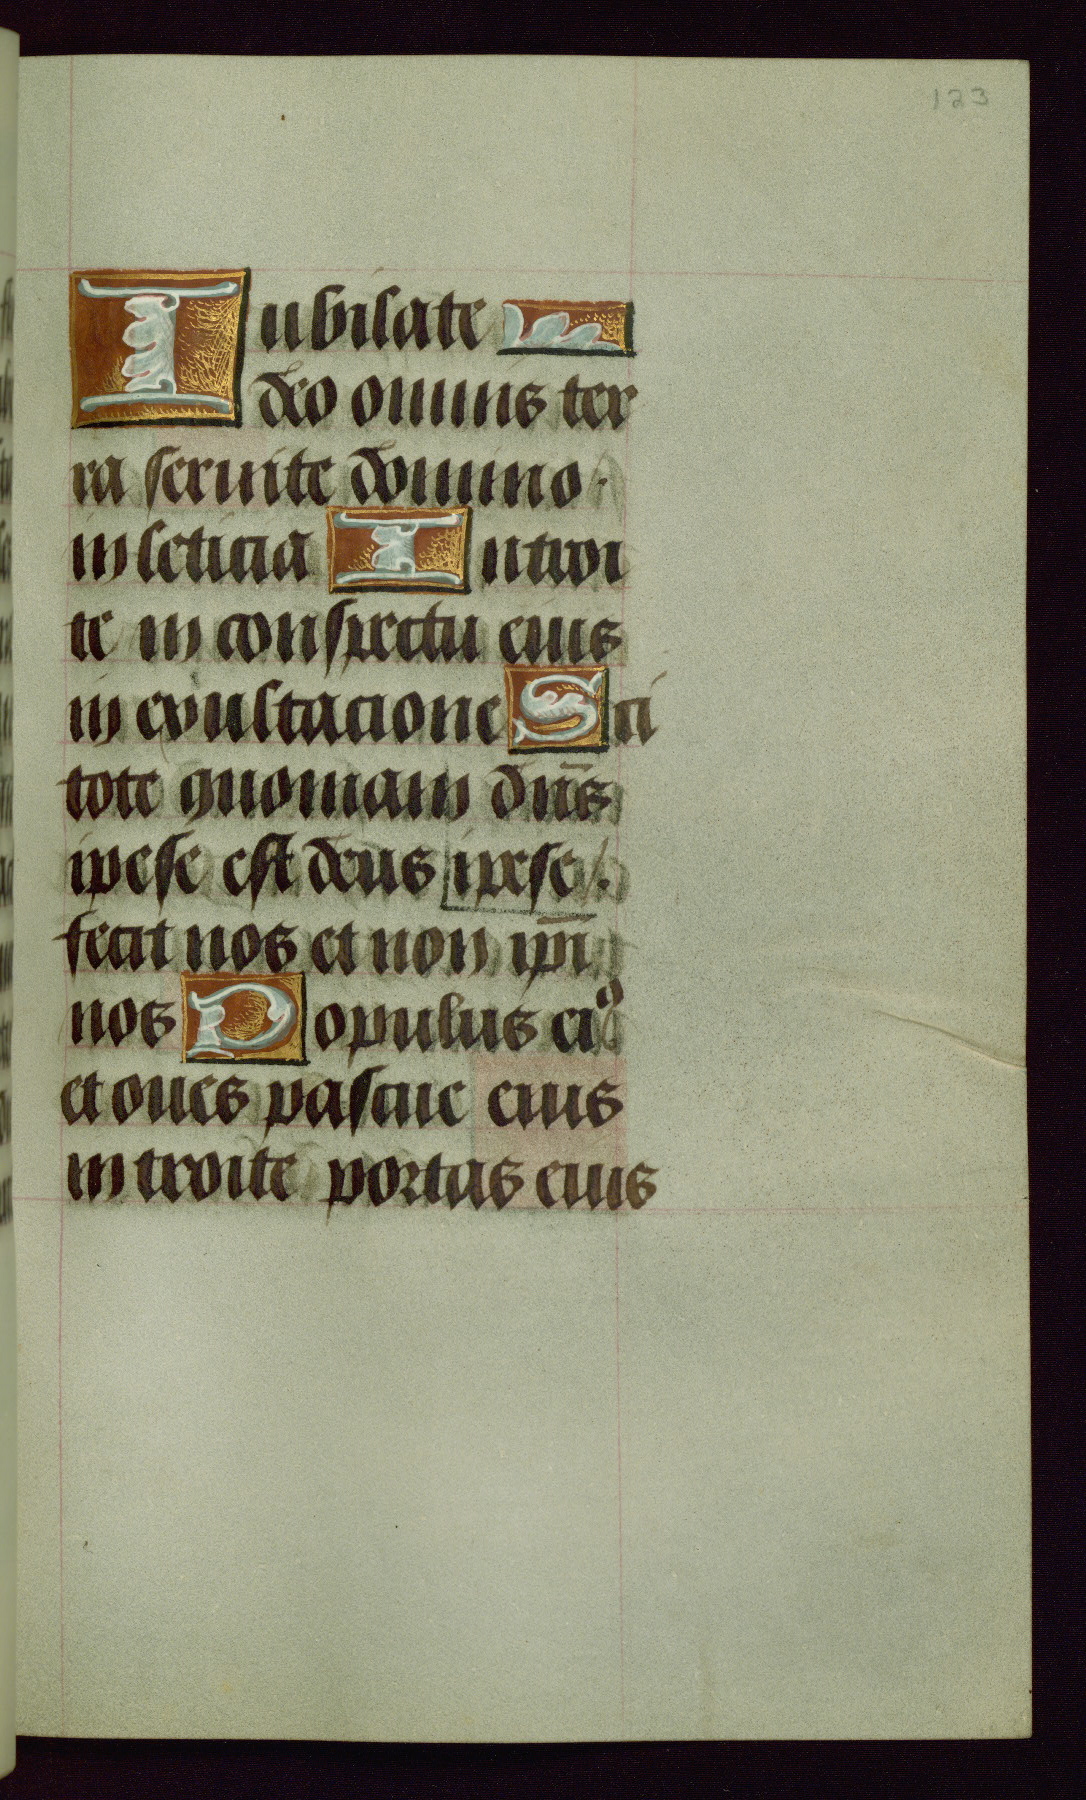 123
Iubilate
deo omnis ter
ra seruite domino.
in leticia Introi
te in conspectu eius
in exultacione Sci
tote quoniam dn̄s
ipese est deus ipse
fecit nos et non ip̄i
nos Populus eiꝰ
et oues pascue eius
introite portas eius